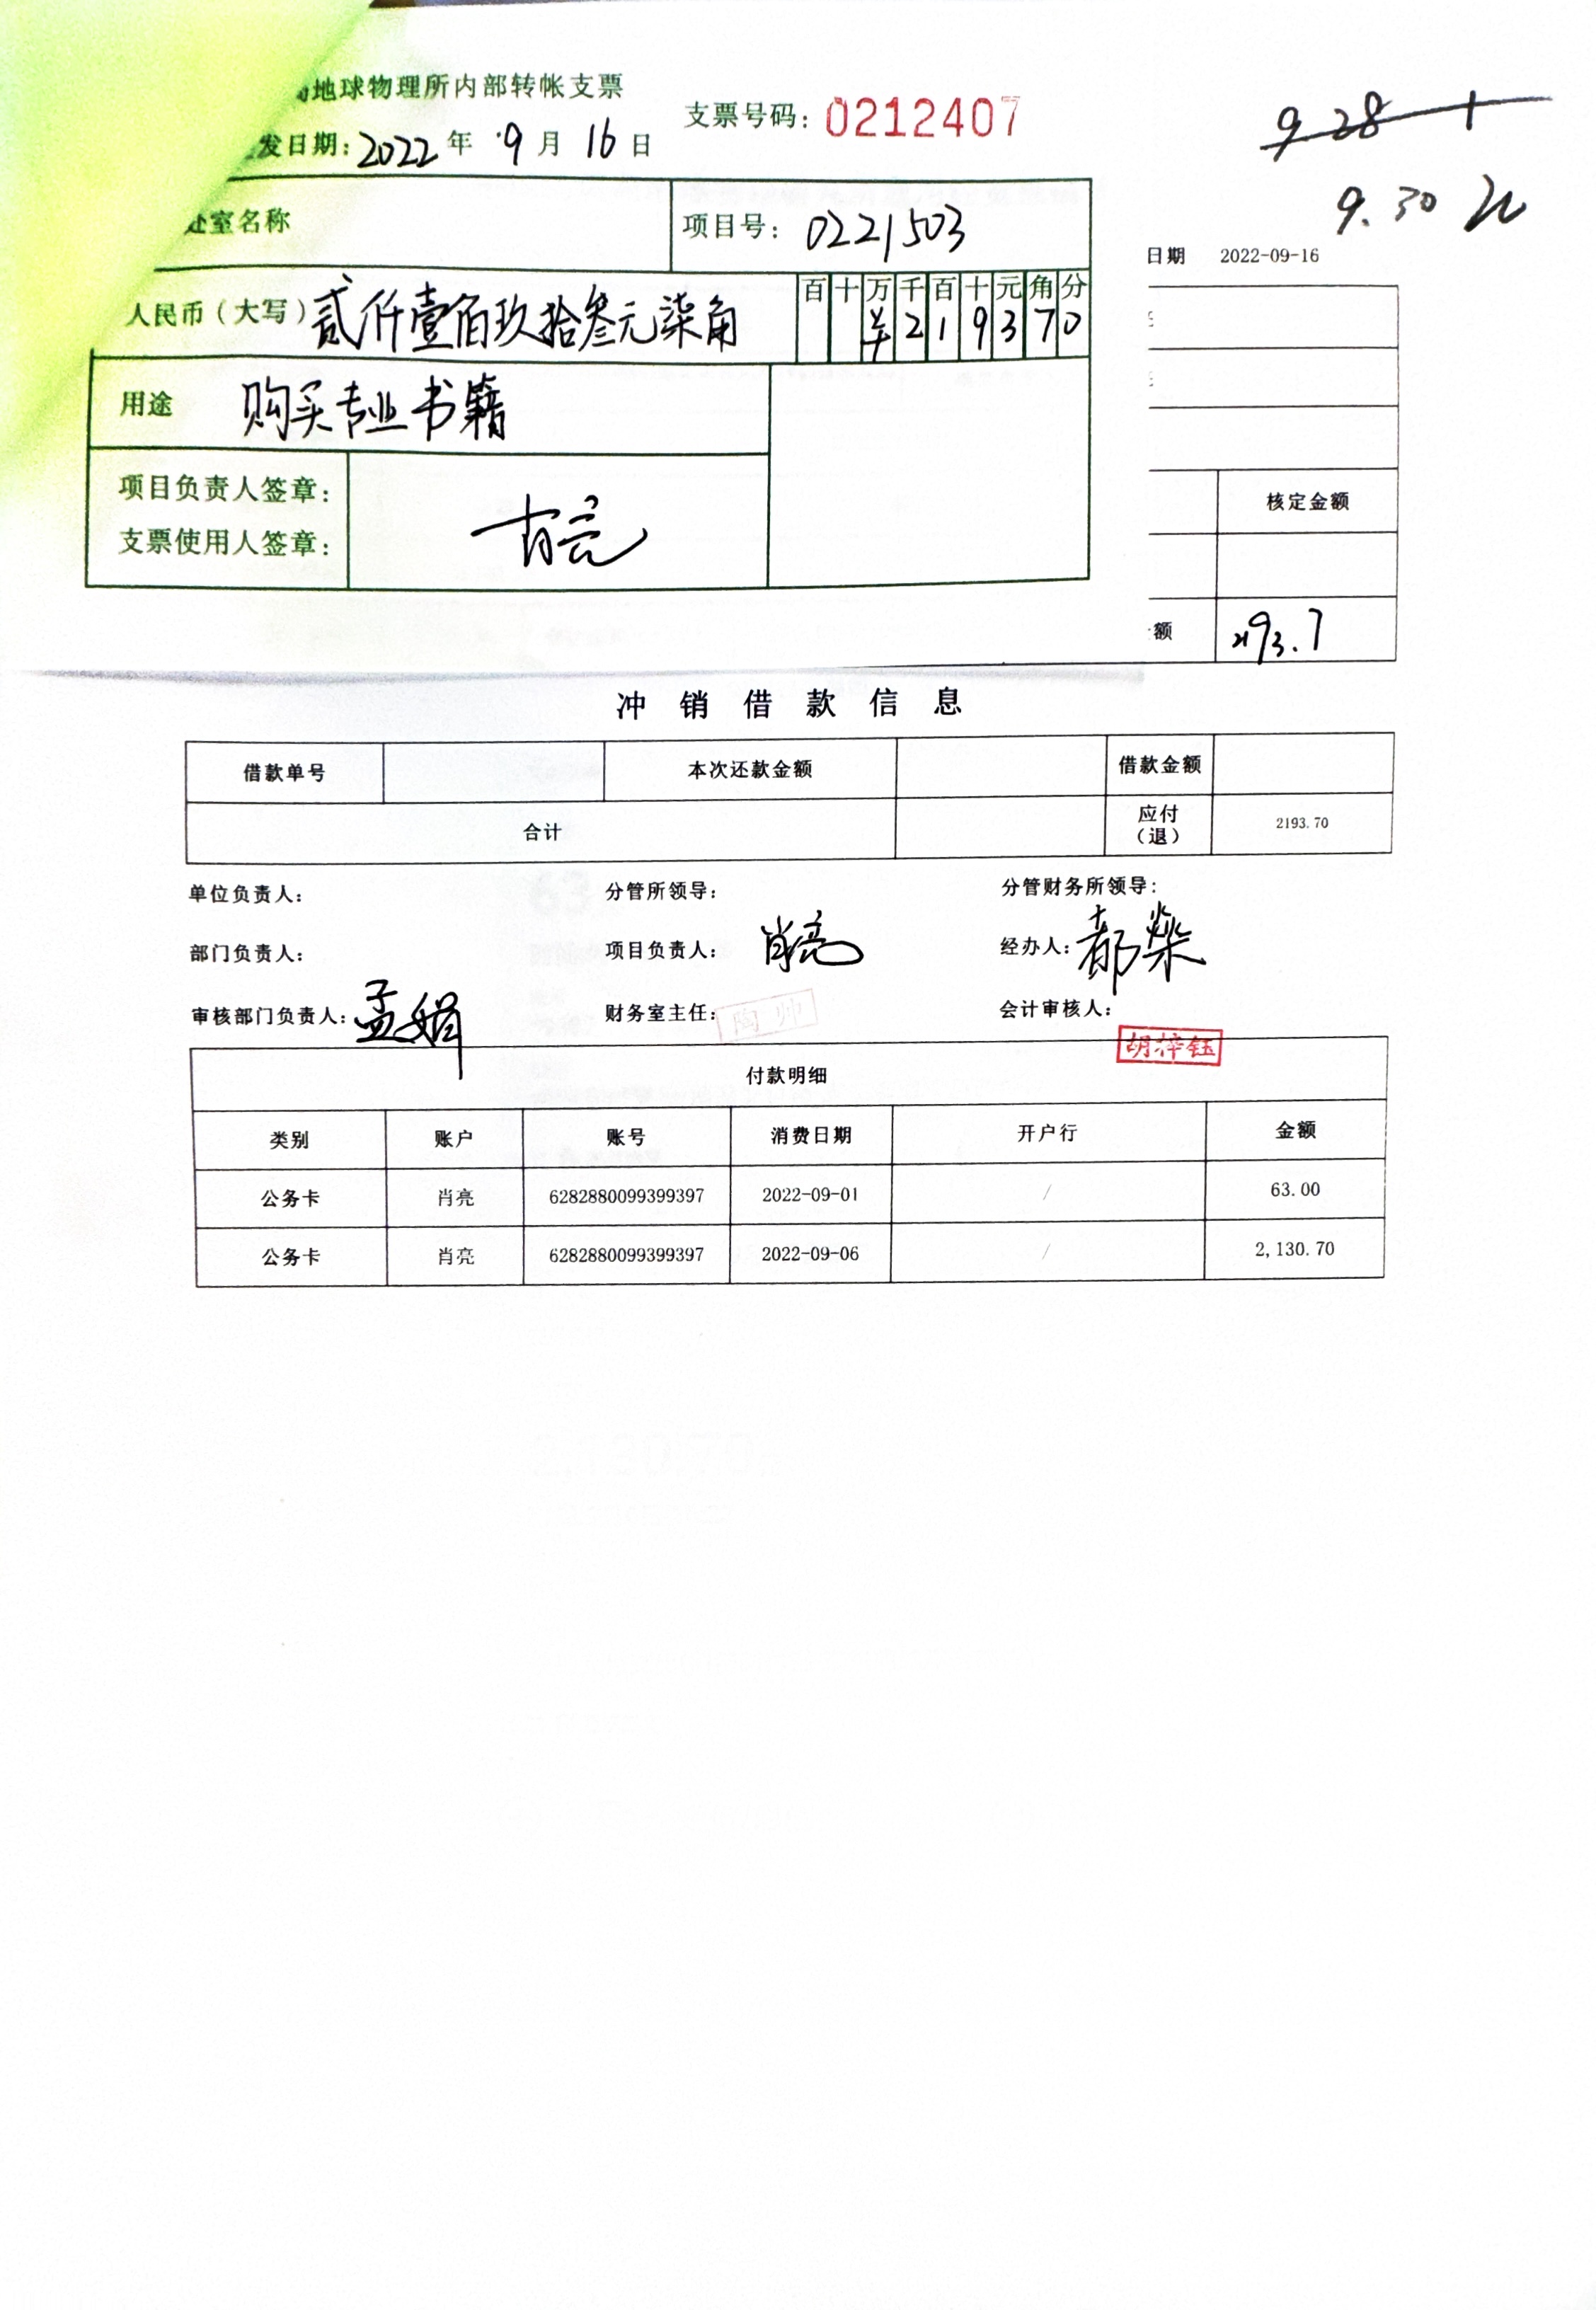 地球物理所内部转帐支票
支票号码：0212407
发日期：2022年 9月 16日
9.28
9.30
日期 2022-09-16
处室名称
项目号：0221503
人民币（大写）贰仟壹佰玖拾叁元柒角
百 十 万 千 百 十 元 角 分
¥ 2 1 9 3 7 0
用途 购买专业书籍
项目负责人签章：
支票使用人签章：
肖亮
核定金额
额 2193.7
冲销借款信息
借款单号 本次还款金额 借款金额
合计 应付（退） 2193.70
单位负责人： 分管所领导： 分管财务所领导：
部门负责人： 项目负责人：肖亮 经办人：郗燊
审核部门负责人：孟娟 财务室主任：陶帅 会计审核人：
胡梓钰
付款明细
类别 账户 账号 消费日期 开户行 金额
公务卡 肖亮 6282880099399397 2022-09-01 / 63.00
公务卡 肖亮 6282880099399397 2022-09-06 / 2,130.70